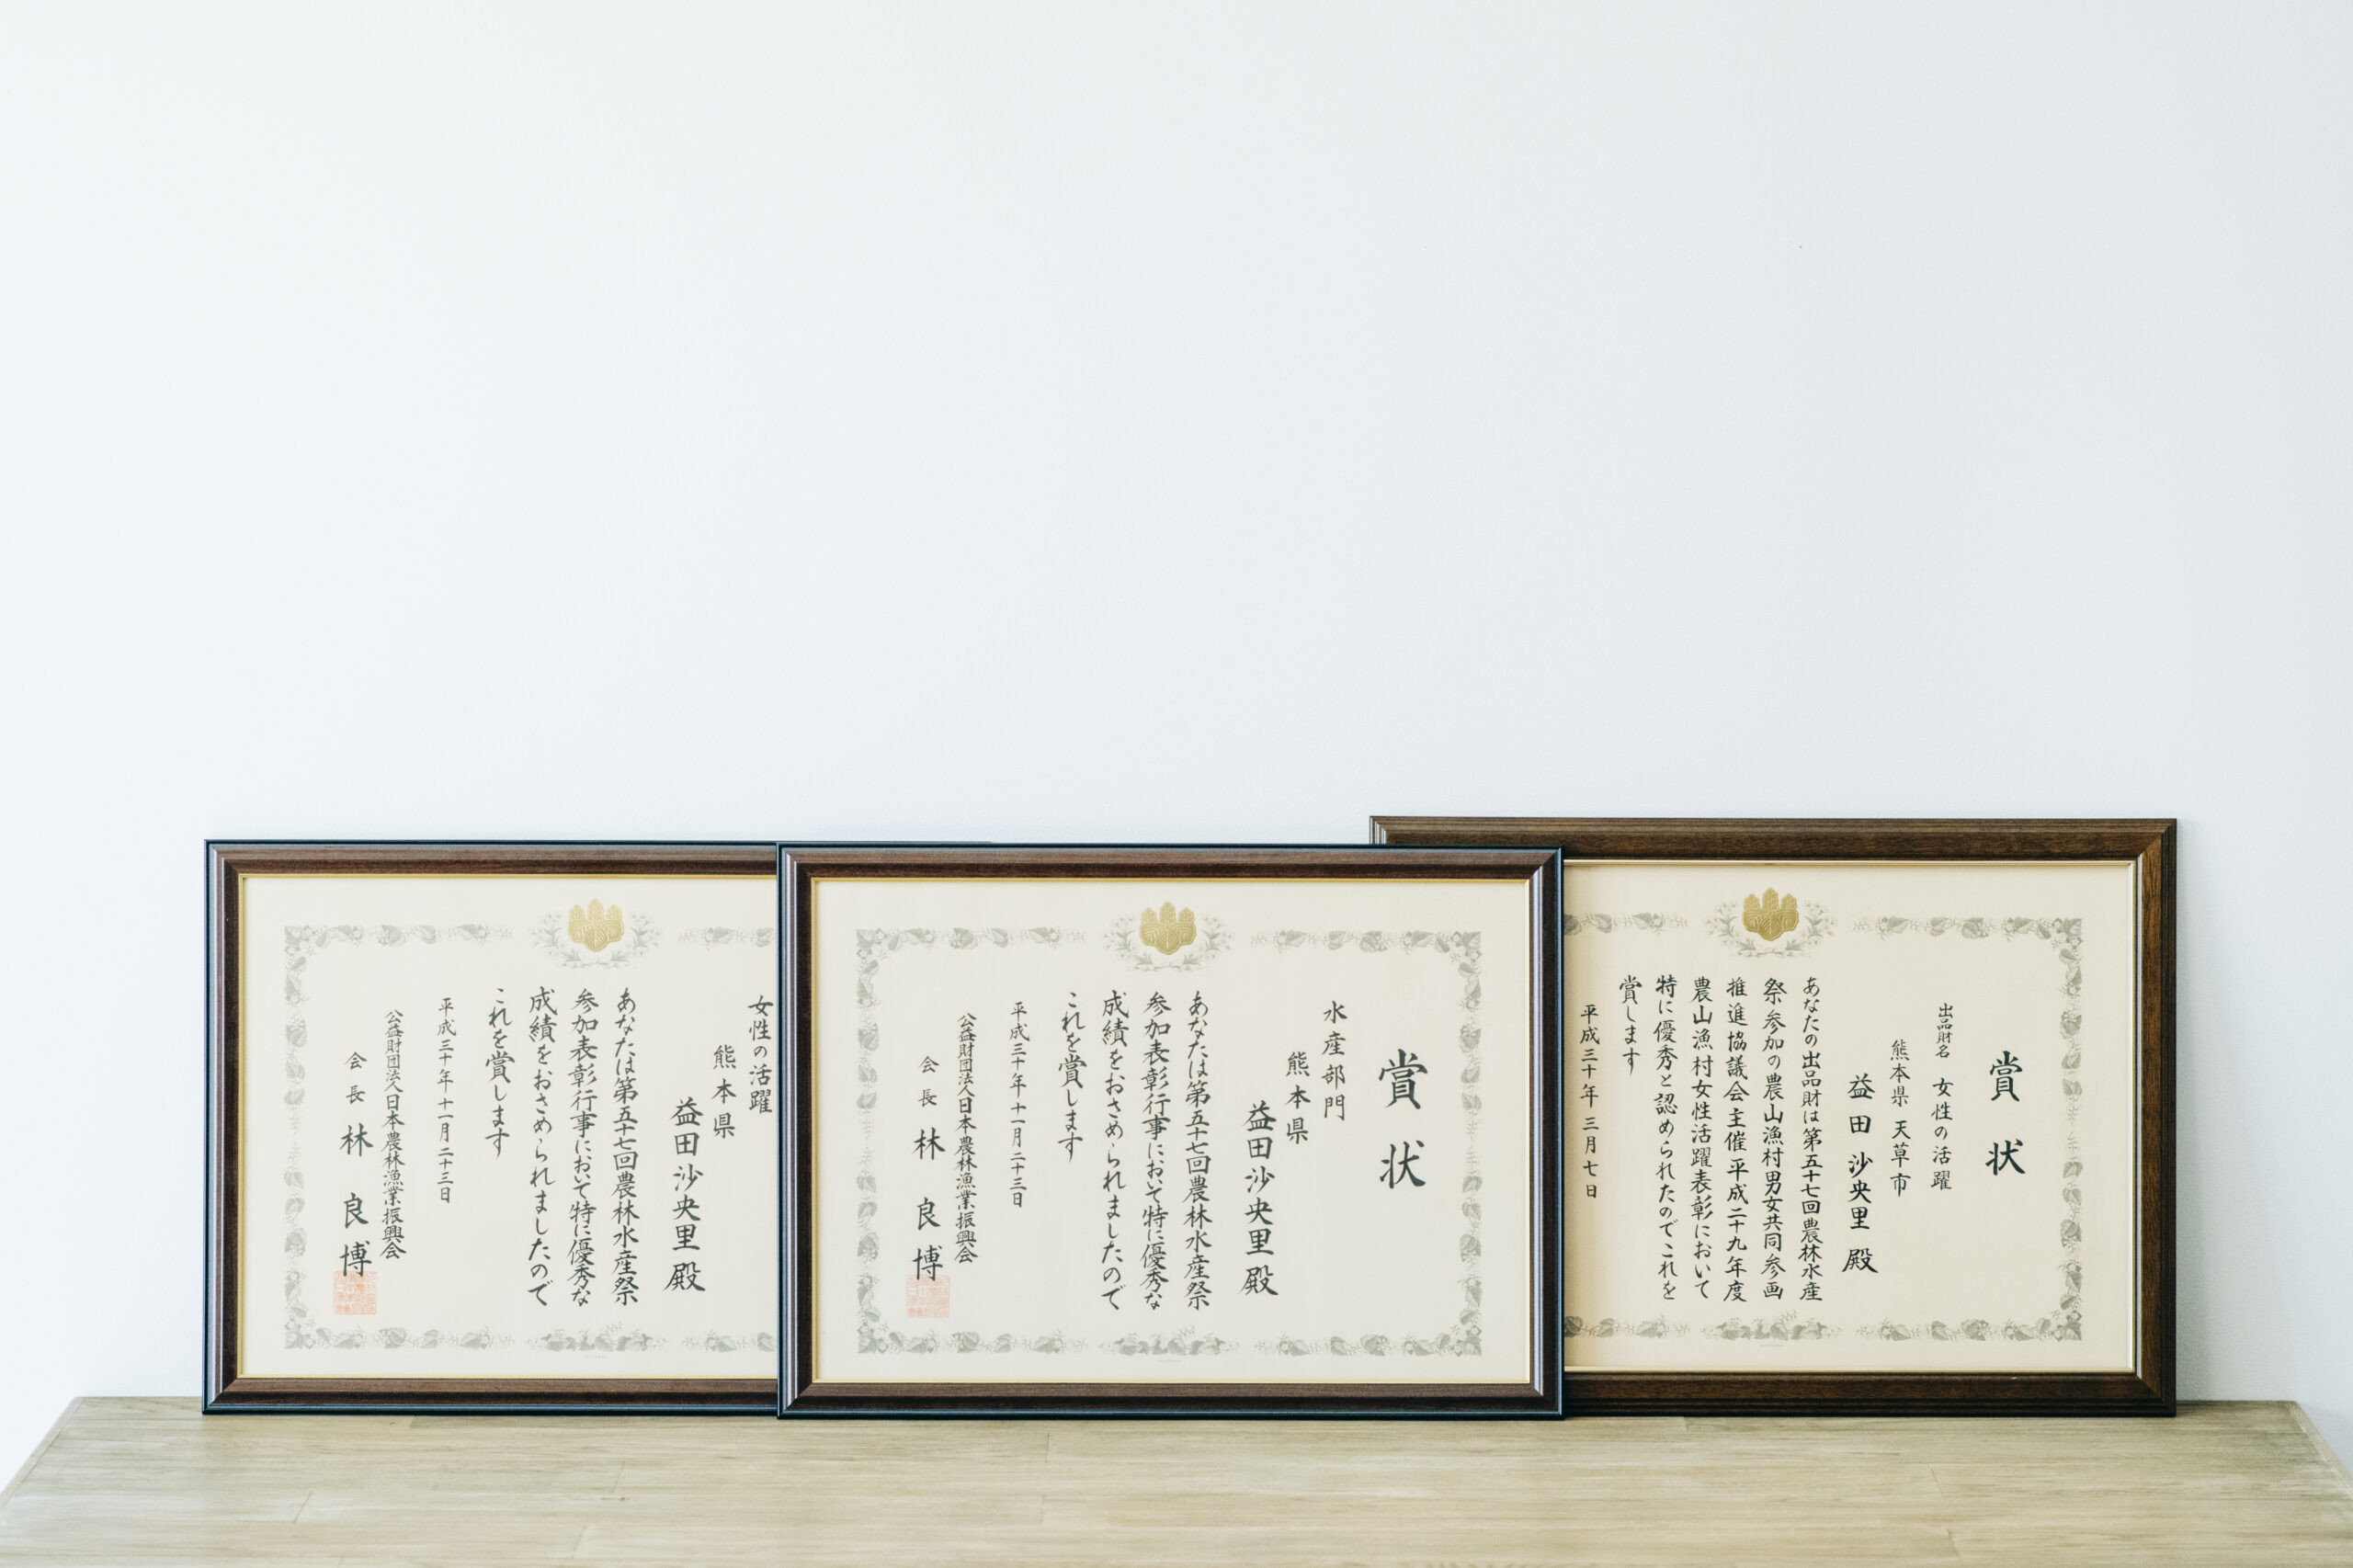 賞状
出品財名 女性の活躍
熊本県 天草市
益田沙央里 殿
あなたの出品財は第五十七回農林水産
祭参加の農山漁村男女共同参画
推進協議会主催平成二十九年度
農山漁村女性活躍表彰において
特に優秀と認められたのでこれを
賞します
平成三十年三月七日
賞状
水産部門
熊本県
益田沙央里殿
あなたは第五十七回農林水産祭
参加表彰行事において特に優秀な
成績をおさめられましたので
これを賞します
平成三十年十一月二十三日
公益財団法人日本農林漁業振興会
会長 林 良博
女性の活躍
熊本県
益田沙央里殿
あなたは第五十七回農林水産祭
参加表彰行事において特に優秀な
成績をおさめられましたので
これを賞します
平成三十年十一月二十三日
公益財団法人日本農林漁業振興会
会長 林 良博